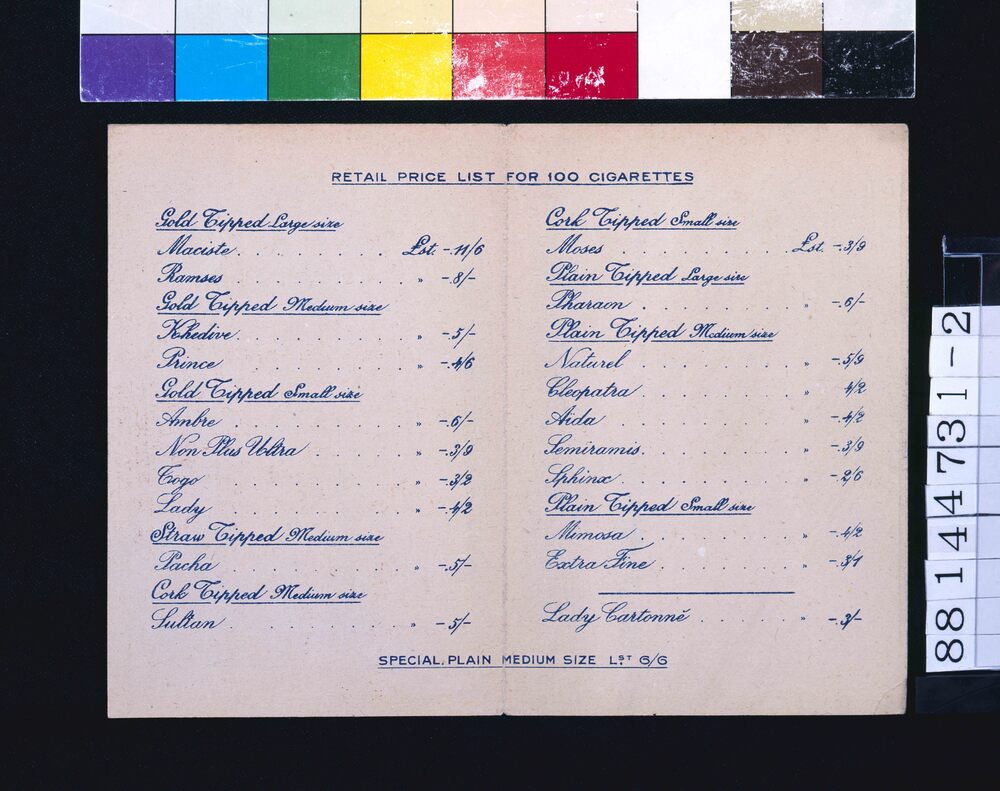 RETAIL PRICE LIST FOR 100 CIGARETTES
Gold Tipped Large size
Maciste . . . . . . . . £st. -.11/6
Ramses . . . . . . . . . „ -.8/-
Gold Tipped Medium size
Khedive . . . . . . . . „ -.5/-
Prince . . . . . . . . „ -.4/6
Gold Tipped Small size
Ambre . . . . . . . . . „ -.6/-
Non Plus Ultra . . . . . „ -.3/9
Togo . . . . . . . . . „ -.3/2
Lady . . . . . . . . . „ -.4/2
Straw Tipped Medium size
Pacha . . . . . . . . . „ -.5/-
Cork Tipped Medium size
Sultan . . . . . . . . . „ -.5/-
Cork Tipped Small size
Moses . . . . . . . . . £st. -.3/9
Plain Tipped Large size
Pharaon . . . . . . . . „ -.6/-
Plain Tipped Medium size
Naturel . . . . . . . . „ -.5/9
Cleopatra . . . . . . . „ 4/2
Aida . . . . . . . . . „ -.4/2
Semiramis . . . . . . . „ -.3/9
Sphinx . . . . . . . . „ -.2/6
Plain Tipped Small size
Mimosa . . . . . . . . „ -.4/2
Extra Fine . . . . . . . „ -.3/1
Lady Cartonné . . . . . „ -.3/-
SPECIAL. PLAIN MEDIUM SIZE L.ST 6/6
88144731-2